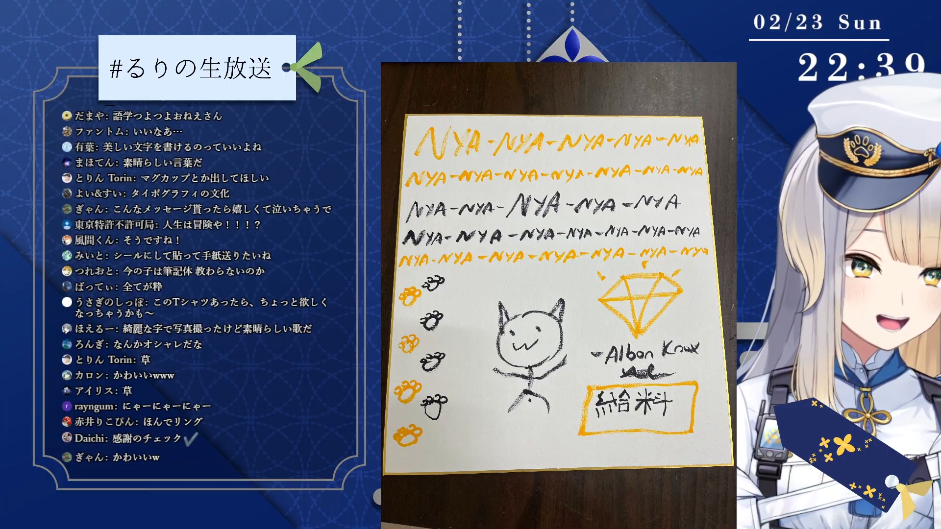 02/23 Sun
22:39
#るりの生放送
だまや: 語学つよつよおねえさん
ファントム: いいなあ…
有葉: 美しい文字を書けるのっていいよね
まほてん: 素晴らしい言葉だ
とりん Torin: マグカップとか出してほしい
よい&すい: タイポグラフィの文化
ぎゃん: こんなメッセージ貰ったら嬉しくて泣いちゃうで
東京特許不許可局: 人生は冒険や！！！？
風間くん: そうですね！
みいと: シールにして貼って手紙送りたいね
つれおと: 今の子は筆記体 教わらないのか
ばってぃ: 全てが粋
うさぎのしっぽ: このTシャツあったら、ちょっと欲しく
なっちゃうかも〜
ほえるー: 綺麗な字で写真撮ったけど素晴らしい歌だ
ろんぎ: なんかオシャレだな
とりん Torin: 草
カロン: かわいいwww
アイリス: 草
rayngum: にゃーにゃーにゃー
赤井りこぴん: ほんでリング
Daichi: 感謝のチェック✔
ぎゃん: かわいいw
NYA-NYA-NYA-NYA-NYA
NYA-NYA-NYA-NYA-NYA-NYA
NYA-NYA-NYA-NYA-NYA
NYA-NYA-NYA-NYA-NYA-NYA
NYA-NYA-NYA-NYA-NYA-NYA
-Alban Knox
給料